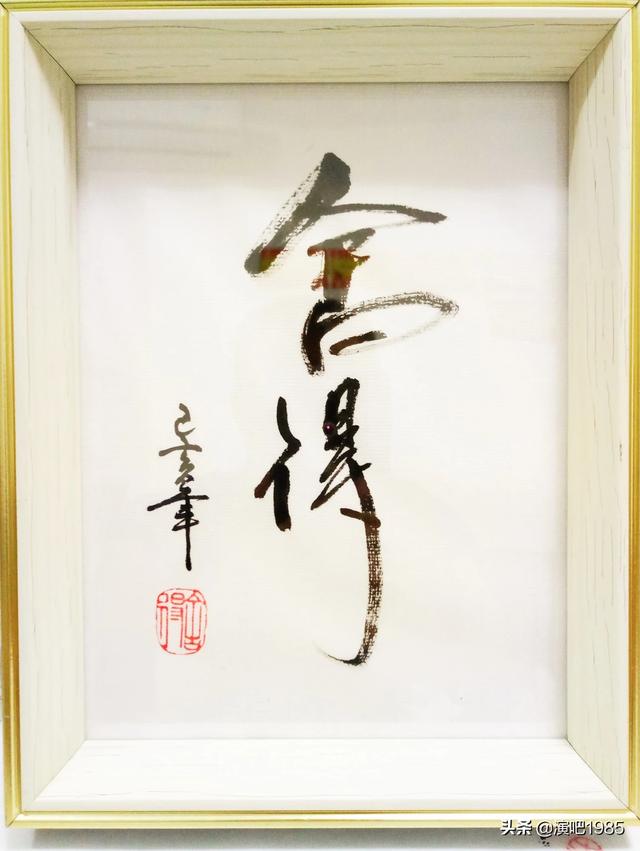 舍得
己亥年
舍得
头条 @演吧1985